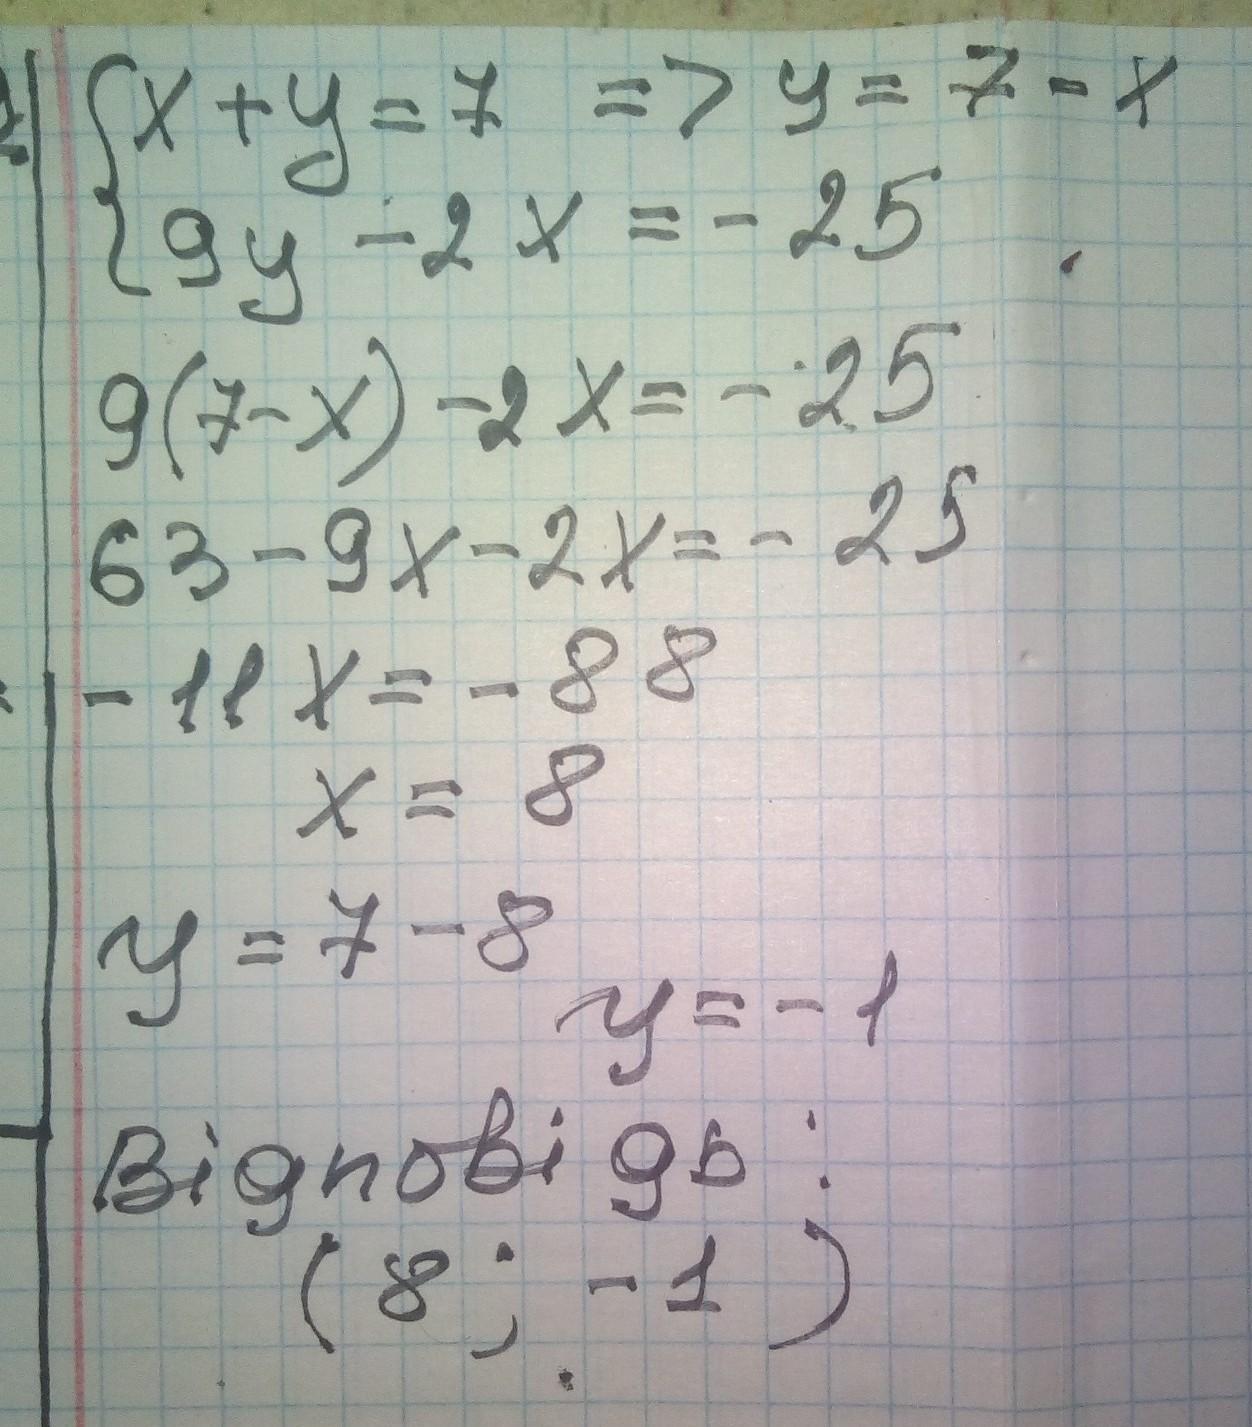 { x + y = 7 => y = 7 - x
9y - 2x = - 25
9(7-x) - 2x = - 25
63 - 9x - 2x = - 25
- 11x = - 88
x = 8
y = 7 - 8
y = - 1
Відповідь:
(8; - 1)